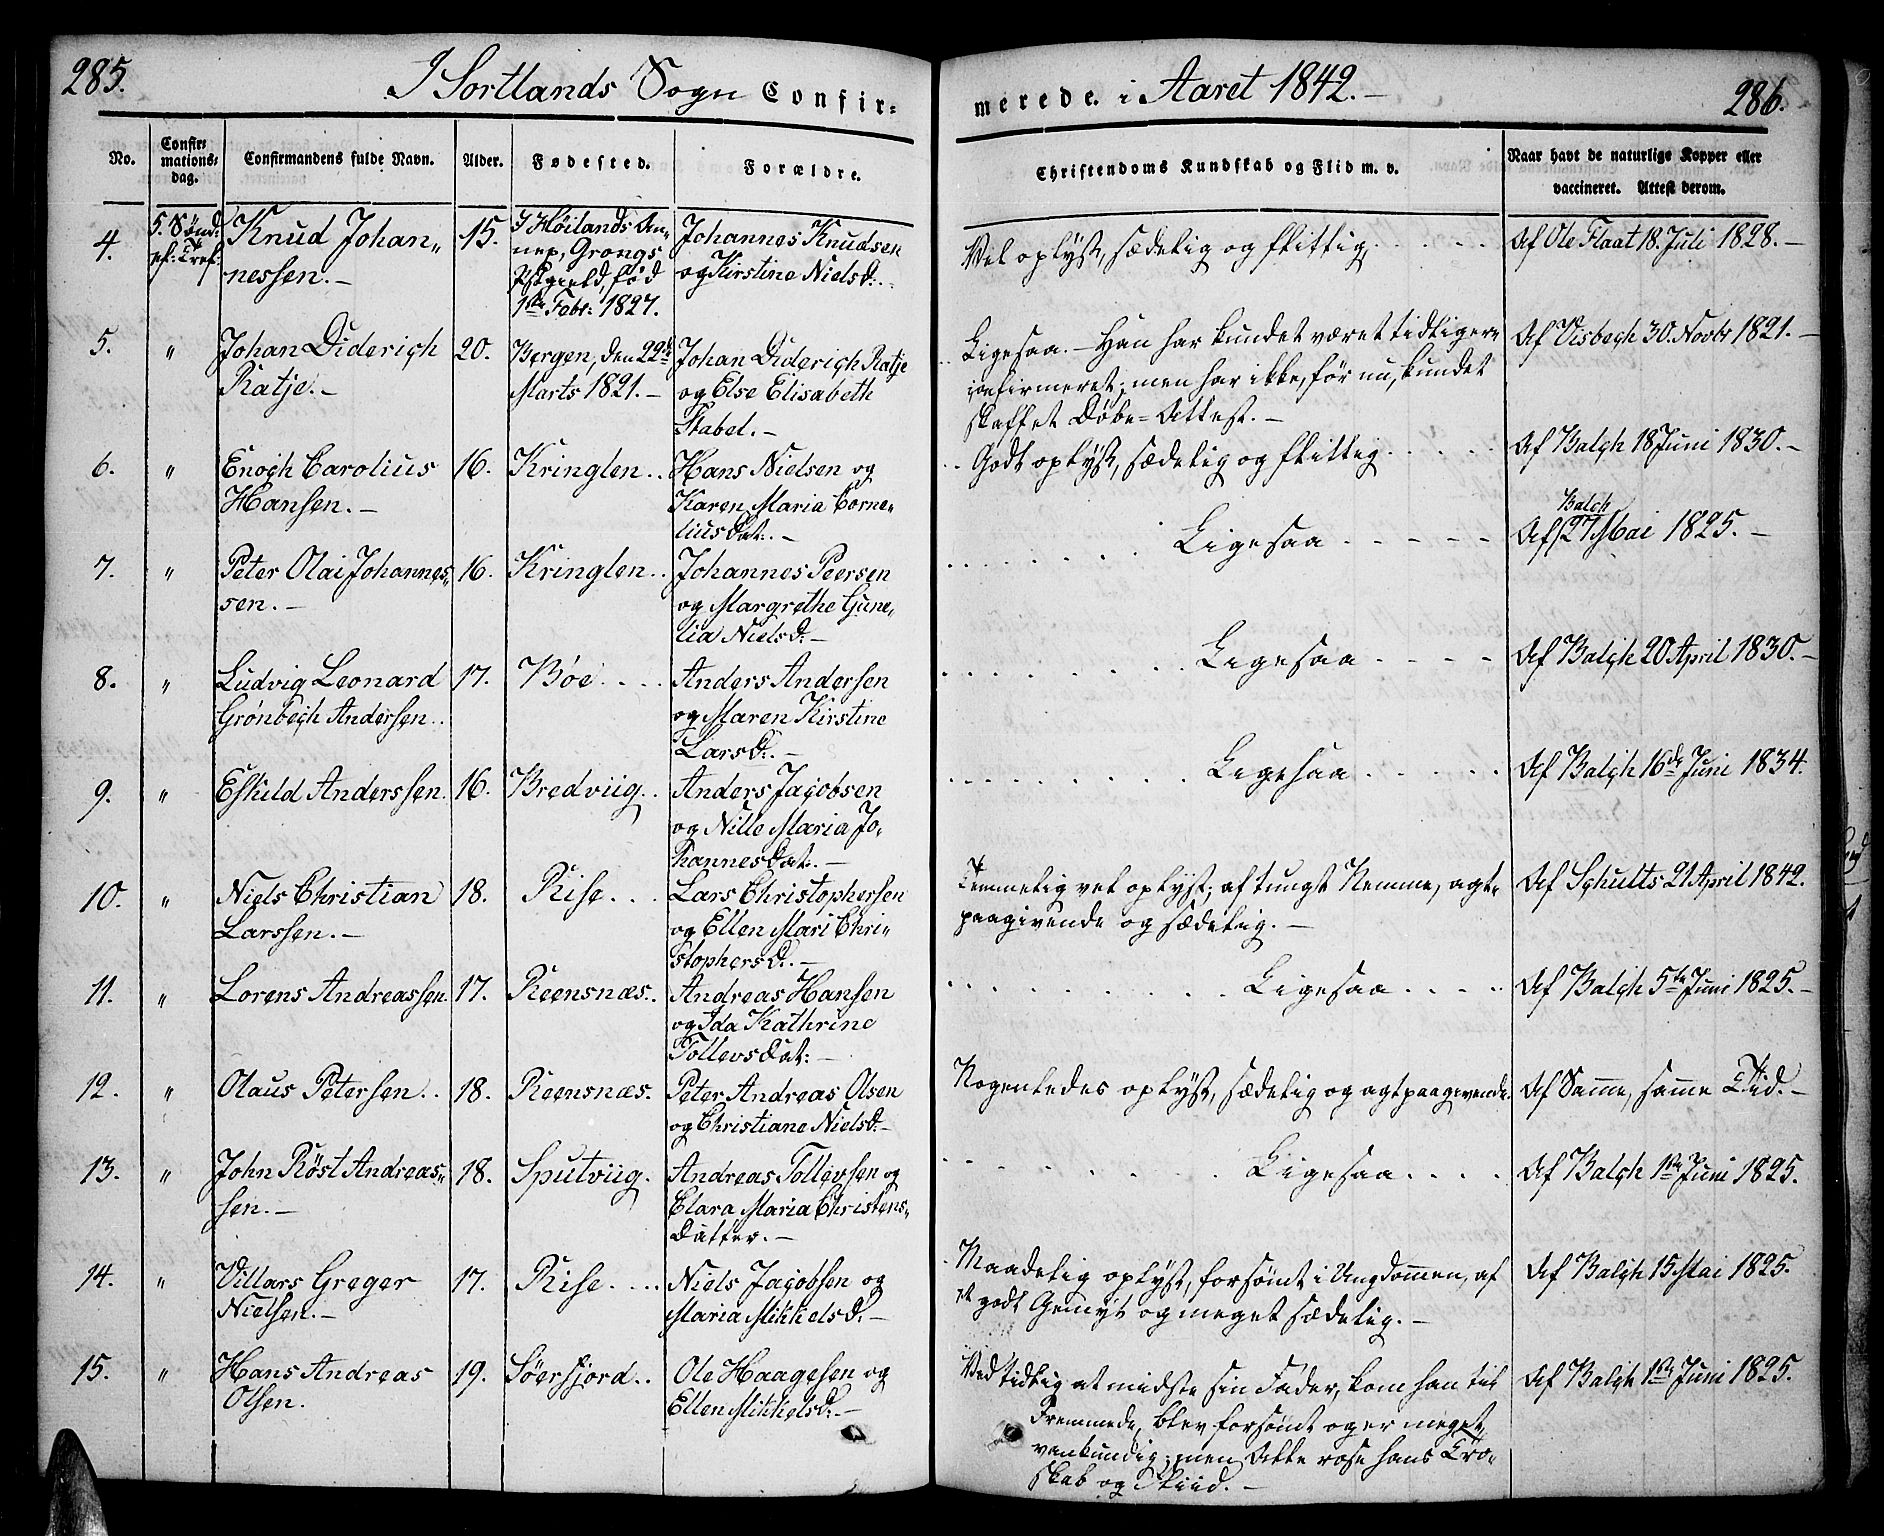 285.
I Sortlands Sogn Confir-
merede i Aaret 1842.-
286.
No.
Confir-
mations-
dag.
Confirmandens fulde Navn.
Alder.
Fødested.
Forældre.
Christendoms Kundskab og Flid m. v.
Naar havt de naturlige Kopper eller
vaccineret. Attest derom.
4.
5. Sønd:
ef: Tref:
Knud Johan-
nessen.-
15.
I Høilands An-
nex, Grongs
Pstgield, fød
1ste Febr: 1827.
Johannes Knudsen
og Kirstine Nielsd:.
Vel oplyst, sædelig og flittig.
Af Ole Flaat 18. Juli 1828.-
5.
"
Johan Diderich
Ratje.-
20.
Bergen, den 22de
Marts 1821.-
Johan Diderich Ratje
og Else Elisabeth
Stabel.-
Ligesaa.- Han har kundet været tidligere
confirmeret; men har ikke, før nu, kundet
skaffet Døbe-Attest.-
Af Visbech 30. Novbr 1821.-
6.
"
Enoch Carolius
Hansen.-
16.
Kringlen..
Hans Nielsen og
Karen Maria Corne-
liusdat:.-
Godt oplyst, sædelig og flittig.
Af Balch 18 Juni 1830.-
7.
"
Peter Olai Johannes-
sen.-
16.
Kringlen..
Johannes Peersen
og Margrethe Gune-
lia Nielsd:-
Ligesaa
Balch
Af 27 Mai 1825.-
8.
"
Ludvig Leonard
Grønbech Andersen..
17.
Bøe....
Anders Andersen
og Maren Kirstine
Larsd:.-
Ligesaa
Af Balch 20 April 1830.-
9.
"
Eskild Anderssen.
16.
Bredviig..
Anders Jacobsen
og Nille Maria Jo-
hannesdat:.-
Ligesaa
Af Balch 16de Juni 1834.
10.
"
Niels Christian
Larssen.-
18.
Rise...
Lars Christophersen
og Ellen Mari Chri-
stophersd:.-
Temmelig vel oplyst; af tungt Nemme, agt-
paagivende og sædelig.-
Af Schults 21 April 1842.
11.
"
Lorens Andreassen.
17.
Reensnæs..
Andreas Hansen
og Ida Kathrine
Tollevsdat:-
Ligesaa
Af Balch 5te Juni 1825.-
12.
"
Olaus Petersen..
18.
Reensnæs.
Peter Andreas Olsen
og Christiane Nielsd:-
Nogenledes oplyst, sædelig og agtpaagivende.
Af Samme, samme Tid.-
13.
"
John Røst Andreas-
sen.-
18.
Sputviig.
Andreas Tollevsen og
Clara Maria Christens-
datter.-
Ligesaa
Af Balch 1ste Juni 1825.
14.
"
Villars Greger
Nielsen.-
17.
Rise....
Niels Jacobsen og
Maria Mikkelsd:-
Maadelig oplyst, forsømt i Ungdommen, af
et godt Gemyt og meget sædelig.-
Af Balch 15 Mai 1825.
15.
"
Hans Andreas
Olsen.
19.
Søerfjord..
Ole Haagesen og
Ellen Mikkelsd:-
Ved tidlig at midste sin Fader, kom han til
Fremmede, blev forsømt og er meget
vankundig; men Alle rose hans Tro-
skab og Fliid.-
Af Balch 1ste Juni 1825.